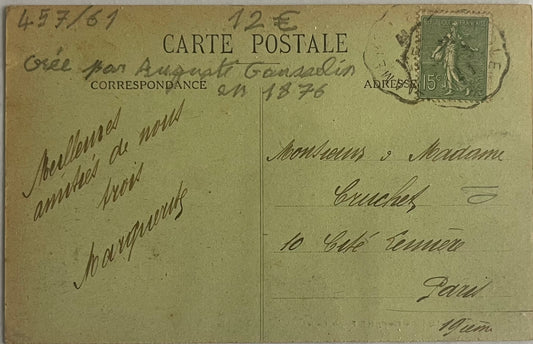 457/61
12€
CARTE POSTALE
Crée par Auguste Gosselin
en 1876
CORRESPONDANCE
ADRESSE
Meilleures
amitiés de nous
trois
Marguerite
Monsieur & Madame
Cruchet
10 Cité Lennière
Paris
19ème
RÉPUBLIQUE FRANÇAISE
15c